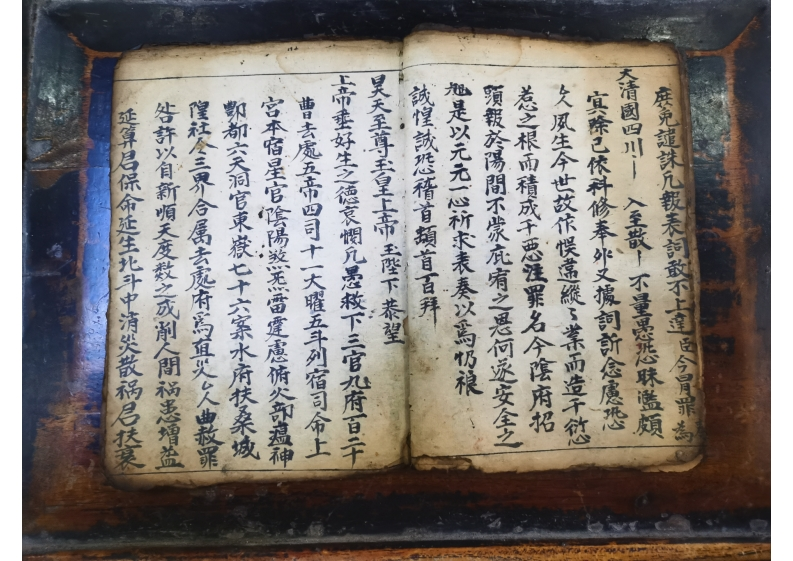 庶免譴誅凡報表詞敢不上達臣今冒罪為
大清國四川 入至散 不量愚恐昧濫頗
宜除已依科修奉外又據詞訢念慮恐
久風生今世故作悮違縱〻業而造千愆
惹之根而積成千惡注罪名今陰府招
顕報於陽間不蒙庇宥之恩何遂安全之
是以元元一心祈求表奏以爲
誠惶誠恐稽首頓首百拜
昊天至尊玉皇上帝玉陛下恭望
上帝垂好生之德哀憫凡愚敕下三官九府百二十
曹去處五帝四司十一大曜五斗列宿司命上
宮本宿星官陰陽 雷霆慮俯火部瘟神
酆都六天洞官東嶽七十六案水府扶桑城
隍社令三界合属去處府爲亙災 人曲救罪
咎許以自新順天度数之成削人間禍患增益
延算君保命延生北斗中消災散祸君扶衰